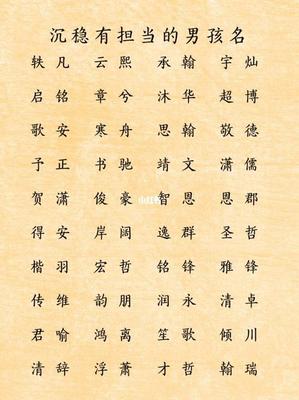 沉稳有担当的男孩名
轶凡 云熙 承翰 宇灿
启铭 章兮 沐华 超博
歌安 寒舟 思翰 敬德
予正 书驰 靖文 潇儒
贺潇 俊豪 智恩 恩郡
得安 岸阔 逸群 圣哲
楷羽 宏哲 铭锋 雅锋
传维 韵朋 润永 清卓
君喻 鸿离 笙歌 倾川
清辞 浮萧 才哲 翰瑞